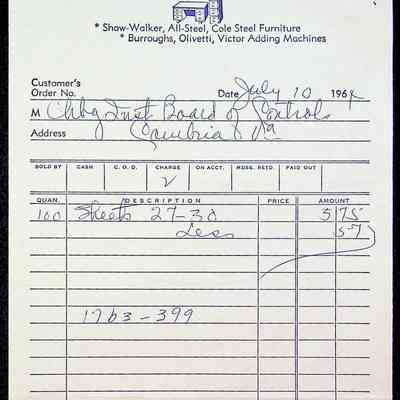 * Shaw-Walker, All-Steel, Cole Steel Furniture
* Burroughs, Olivetti, Victor Adding Machines
Customer's
Order No. Date July 10 1964
M Chbg Inst Board of Control
Address Cambria Va
SOLD BY CASH C. O. D. CHARGE ON ACCT. MDSE. RETD. PAID OUT
✓
QUAN. DESCRIPTION PRICE AMOUNT
100 Sheets 27-30 5 75
Less 57
1763-399